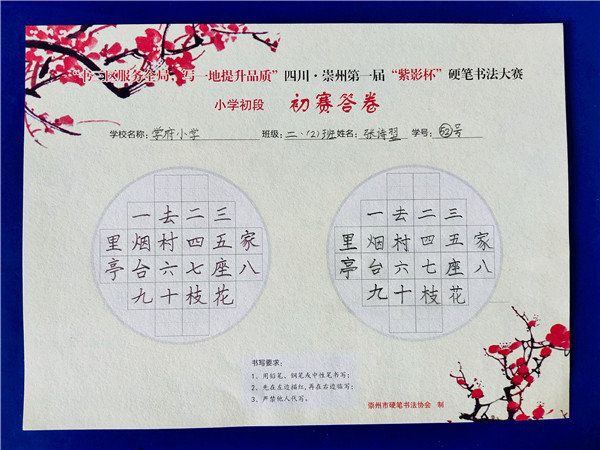 区服务全局 写一地提升品质” 四川·崇州第一届 “紫影杯” 硬笔书法大赛
小学初段 初赛答卷
学校名称：学府小学 班级：二.(2)班 姓名：张诗翌 学号：号
一去二三
里烟村四五家
亭台六七座八
九十枝花
一去二三
里烟村四五家
亭台六七座八
九十枝花
书写要求：
1、用铅笔、钢笔或中性笔书写；
2、先在左边描红，再在右边临写；
3、严禁他人代写。
崇州市硬笔书法协会 制